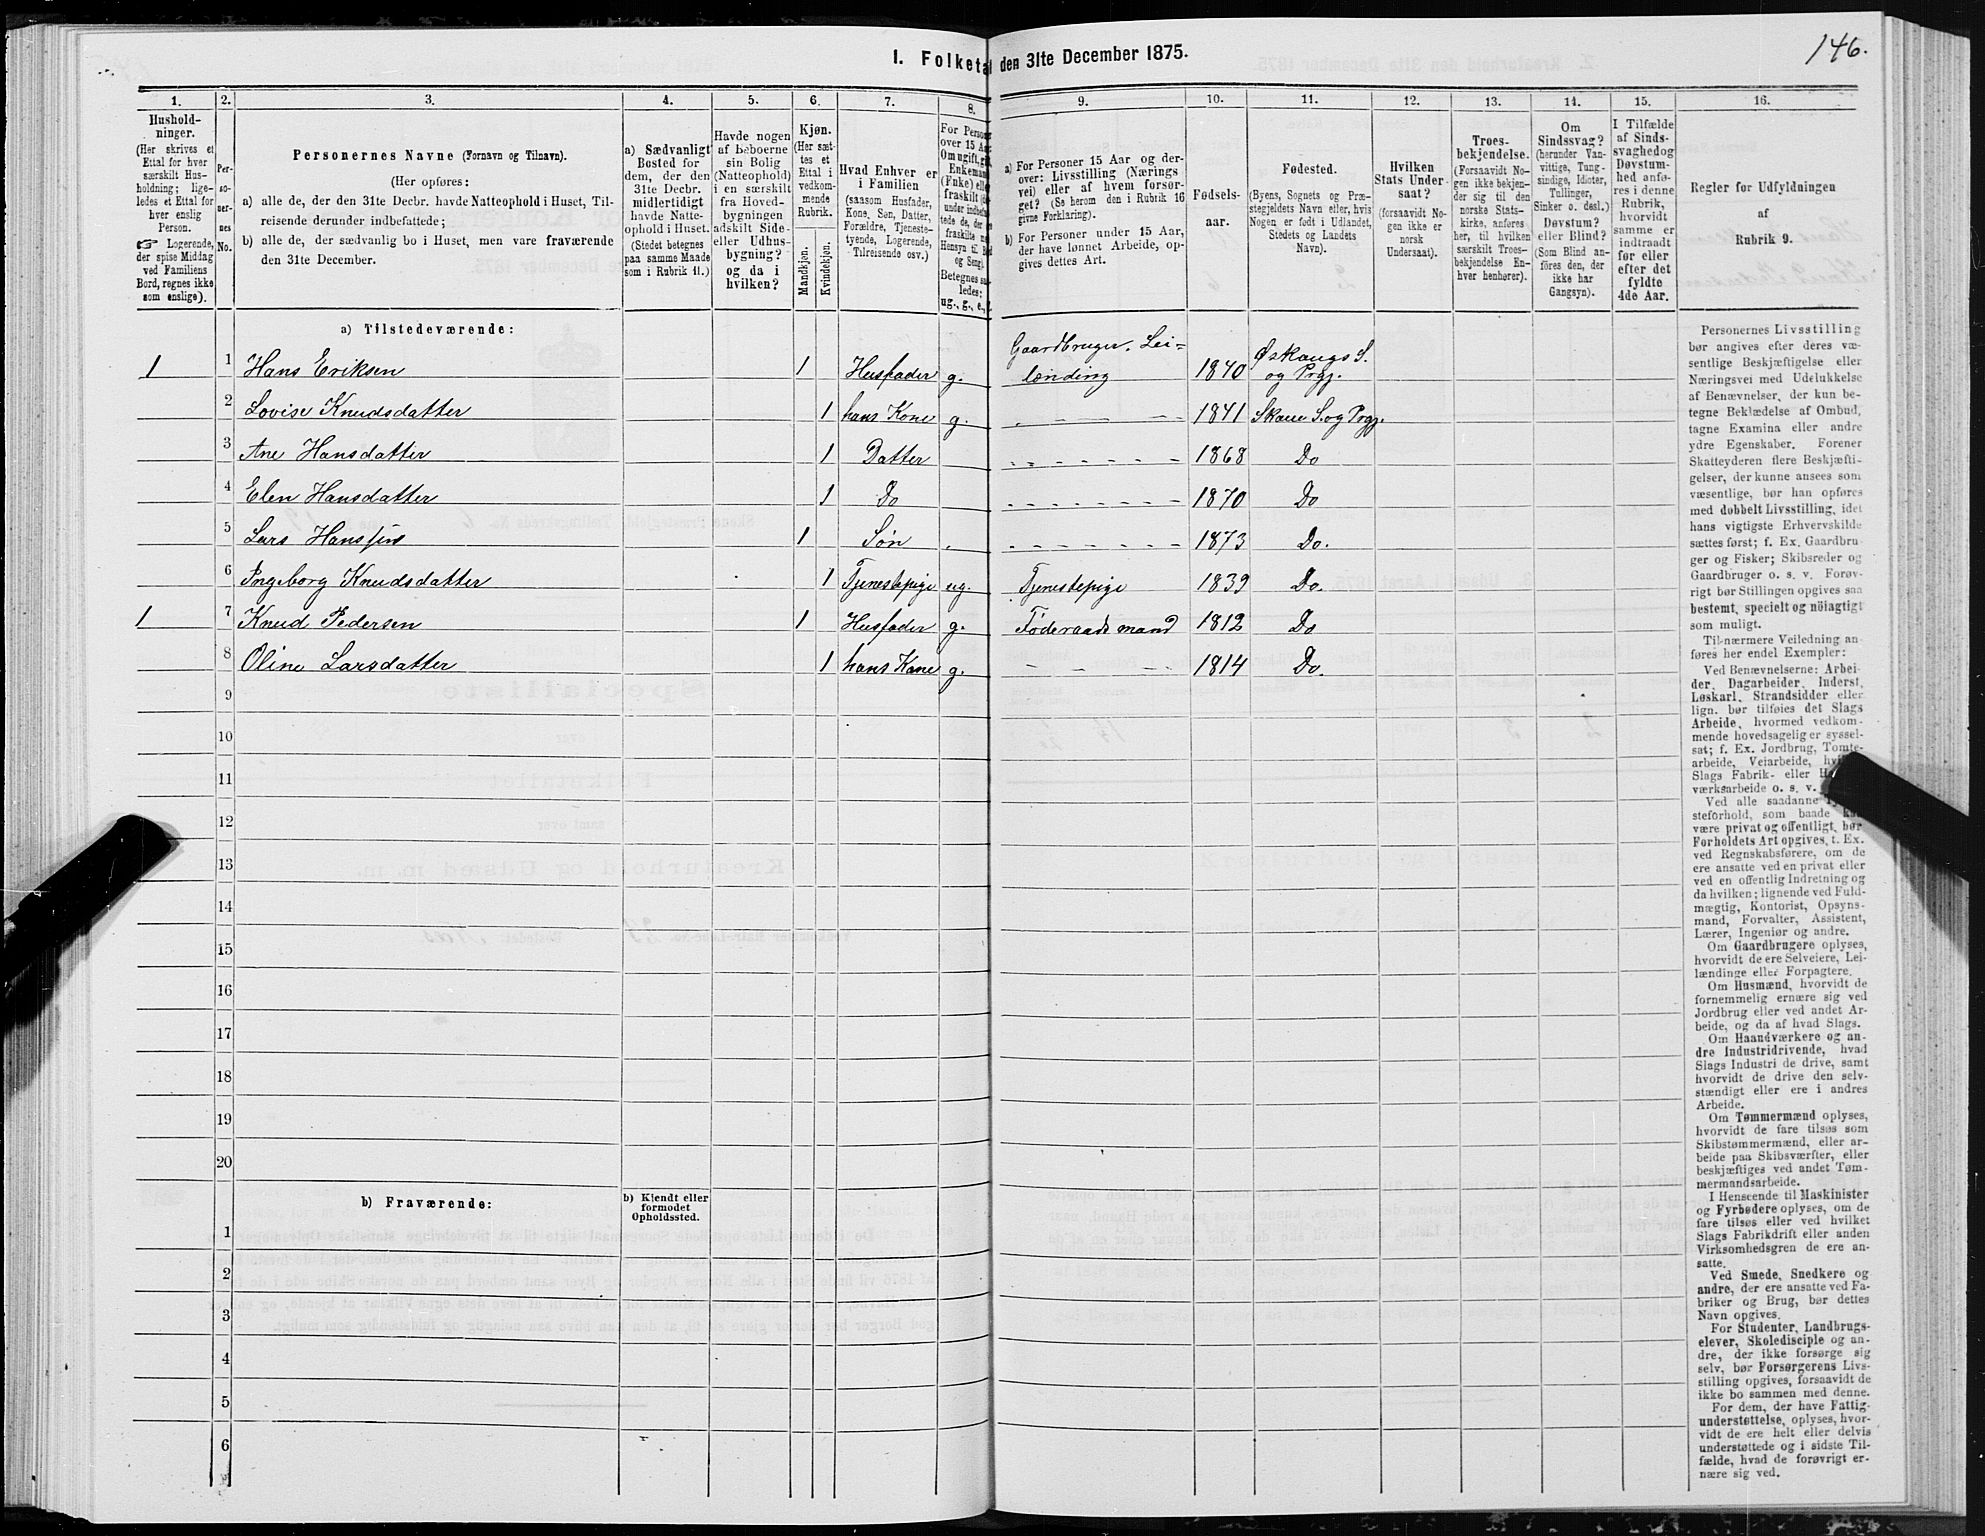 I. Folketal den 31te December 1875.
146.
1.
2.
3.
4.
5.
6.
7.
8.
9.
10.
11.
12.
13.
14.
15.
16.
Hushold-
ninger.
(Her skrives et
Ettal for hver
særskilt Hus-
holdning; lige-
ledes et Ettal for
hver enslig
Person.
☞ Logerende,
der spise Middag
ved Familiens
Bord, regnes ikke
som enslige).
Per-
so-
ner-
nes
No.
Personernes Navne (Fornavn og Tilnavn).
(Her opføres:
a) alle de, der den 31te Decbr. havde Natteophold i Huset, Til-
reisende derunder indbefattede;
b) alle de, der sædvanlig bo i Huset, men vare fraværende
den 31te December.
a) Sædvanligt
Bosted for
dem, der den
31te Decbr.
midlertidigt
havde Natte-
ophold i Huset.
(Stedet betegnes
paa samme Maade
som i Rubrik 11.)
Havde nogen
af beboerne
sin Bolig
(Natteophold)
i en særskilt
fra Hoved-
bygningen
adskilt Side-
eller Udhus-
bygning?
og da i
hvilken?
Kjøn.
(Her sæt-
tes et
Ettal i
vedkom-
mende
Rubrik.
Mandkjøn.
Kvindekjøn.
Hvad Enhver er
i Familien
(saasom Husfader,
Kone, Søn, Datter,
Forældre, Tjeneste-
tyende, Logerende,
Tilreisende osv.)
For Persone
over 15 Aar
Om ugift, gif
Enkemand
(Enke) elle
fraskilt
Betegnes saa-
ledes:
ug., g., e.,
a) For Personer 15 Aar og der-
over: Livsstilling (Nærings
vei) eller af hvem forsør-
get? (Se herom den i Rubrik 16
givne Forklaring).
b) For Personer under 15 Aar,
der have lønnet Arbeide, op-
gives dettes Art.
Fødsels-
aar.
Fødested.
(Byens, Sognets og Præ-
stegjeldets Navn eller, hvis
Nogen er født i Udlandet,
Stedets og Landets
Navn).
Hvilken
Stats Under-
saat?
(forsaavidt No-
gen ikke er
norsk
Undersaat).
Troes-
bekjendelse.
(Forsaavidt No-
gen ikke bekjen-
der sig til den
norske Stats-
kirke, anføres
her, til hvilken
særskilt Troes-
bekjendelse En-
hver henhører).
Om
Sindssvag?
(herunder Van-
vittige, Tung-
sindige, Idioter,
Tullinger,
Sinker o. desl.)
Døvstum?
eller Blind?
(Som Blind an-
føres den, der
ikke har
Gangsyn).
I Tilfælde
af Sinds-
svaghed og
Døvstum-
hed anfø-
res i denne
Rubrik,
hvorvidt
samme er
indtraadt
før eller
efter det
fyldte
4de Aar.
Regler for Udfyldningen
af
Rubrik 9.
a) Tilstedeværende:
1 1 Hans Eriksen 1 Husfader g. Gaardbruger. Lei-
lænding 1840 Øskaugs S.
og Prgj.
2 Lovise Knudsdatter 1 hans Kone g. - - - 1841 Skaue S. og Prgj.
3 Ane Hansdatter 1 Datter - - - 1868 Do
4 Elen Hansdatter 1 Do - - - 1870 Do
5 Lars Hanssen 1 Søn - - - 1873 Do.
6 Ingeborg Knudsdatter 1 Tjenestepige ug. Tjenestepige 1839 Do.
1 7 Knud Pedersen 1 Husfader g. Føderaadsmand 1812 Do
8 Oline Larsdatter 1 hans Kone g. - - - 1814 Do.
9
10
11
12
13
14
15
16
17
18
19
20
b) Fraværende:
b) Kjendt eller
formodet
Opholdssted.
1
2
3
4
5
6
Personernes Livsstilling
bør angives efter deres væ-
sentlige Beskjæftigelse eller
Næringsvei med Udelukkelse
af Benævnelser, der kun be-
tegne Beklædelse af Ombud,
tagne Examina eller andre
ydre Egenskaber. Forener
Skatteyderen flere Beskjæfti-
gelser, der kunne ansees som
væsentlige, bør han opføres
med dobbelt Livsstilling, idet
hans vigtigste Erhvervskilde
sættes først; f. Ex. Gaardbru-
ger og Fisker; Skibsreder og
Gaardbruger o. s. v. Forøv-
rigt bør Stillingen opgives saa
bestemt, specielt og nöiagtigt
som muligt.
Til nærmere Veiledning an-
føres her endel Exempler:
Ved Benævnelserne: Arbei-
der, Dagarbeider, Inderst,
Løskarl, Strandsidder eller
lign. bør tilføies det Slags
Arbeide, hvormed vedkom-
mende hovedsagelig er syssel-
sat; f. Ex. Jordbrug, Tomte-
arbeide, Veiarbeide, hvil
Slags Fabrik- eller
værksarbeide o. s. v.
Ved alle saadanne
steforhold, som baade
være privat og offentligt, bør
Forholdets Art opgives, f. Ex.
ved Regnskabsførere, om de
ere ansatte ved en privat eller
ved en offentlig Indretning og
da hvilken; lignende ved Fuld-
mægtig, Kontorist, Opsyns-
mand, Forvalter, Assistent,
Lærer, Ingeniør og andre.
Om Gaardbrugere oplyses,
hvorvidt de ere Selveiere, Lei-
lændinge eller Forpagtere.
Om Husmænd, hvorvidt de
fornemmelig ernære sig ved
Jordbrug eller ved andet Ar-
beide, og da af hvad Slags.
Om Haandværkere og an-
dre Industridrivende, hvad
Slags Industri de drive, samt
hvorvidt de drive den selv-
stændigt eller ere i andres
Arbeide.
Om Tømmermænd oplyses,
hvorvidt de fare tilsøs som
Skibstømmermænd, eller ar-
beide paa Skibsværfter, eller
beskjæftiges ved andet Tøm-
mermandsarbeide.
I Henseende til Maskinister
og Fyrbødere oplyses, om de
fare tilsøs eller ved hvilket
Slags Fabrikdrift eller anden
Virksomhedsgren de ere an-
satte.
Ved Smede, Snedkere og
andre, der ere ansatte ved Fa-
briker og Brug, bør dettes
Navn opgives.
For Studenter, Landbrugs-
elever, Skoledisciple og an-
dre, der ikke forsørge sig
selv, bør Forsørgerens Livs-
stilling opgives, forsaavidt de
ikke bo sammen med denne.
For dem, der have Fattig-
understøttelse, oplyses, hvor-
vidt de ere helt eller delvis
understøttede og i sidste Til-
fælde, hvad de forøvrigt er-
nære sig ved.